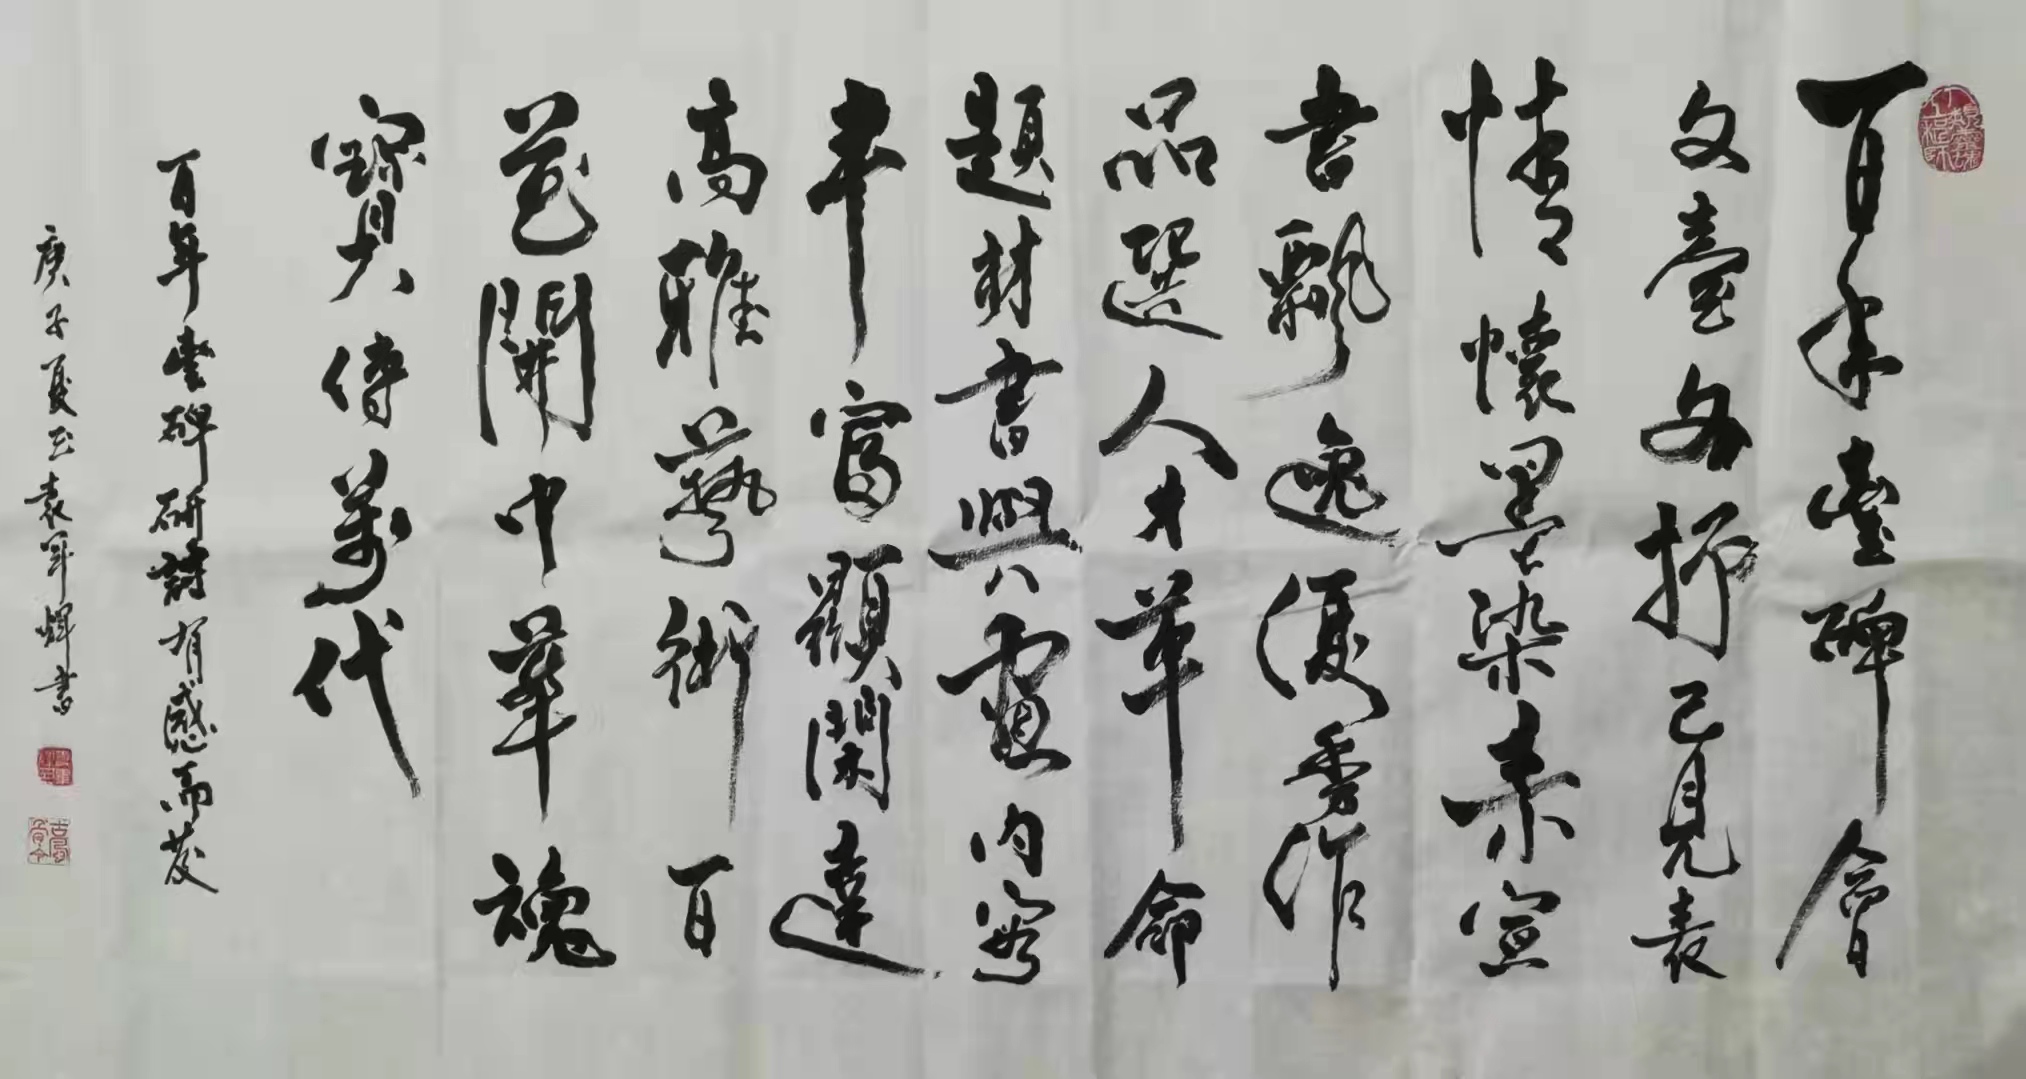 百年臺碑會
文臺各抒己見表
情懷墨染素宣
書飄逸優秀作
品選人才革命
題材書與畫內容
丰富顯闊達
高雅藝術百
花開中華魂
寶貝傳萬代
百年臺碑研討有感而發
庚子夏玉袁军輝書